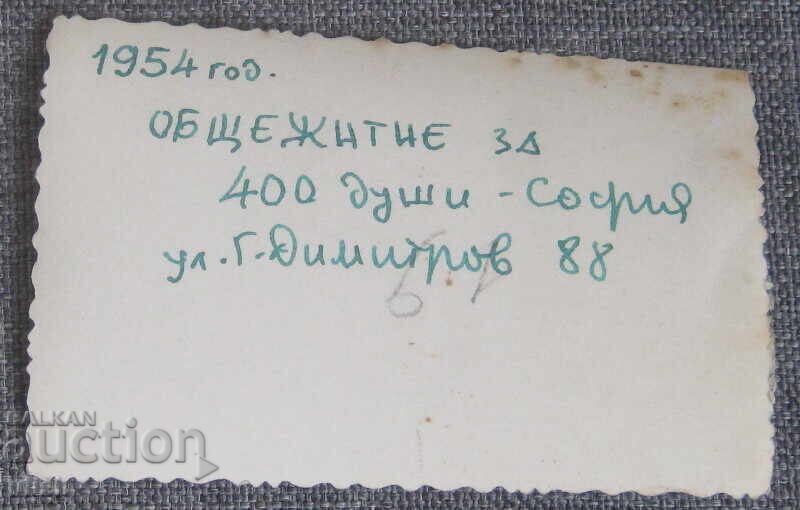 1954 год.
ОБЩЕЖИТИЕ ЗА
400 души - София
ул. Г. Димитров 88
BALKAN
auction